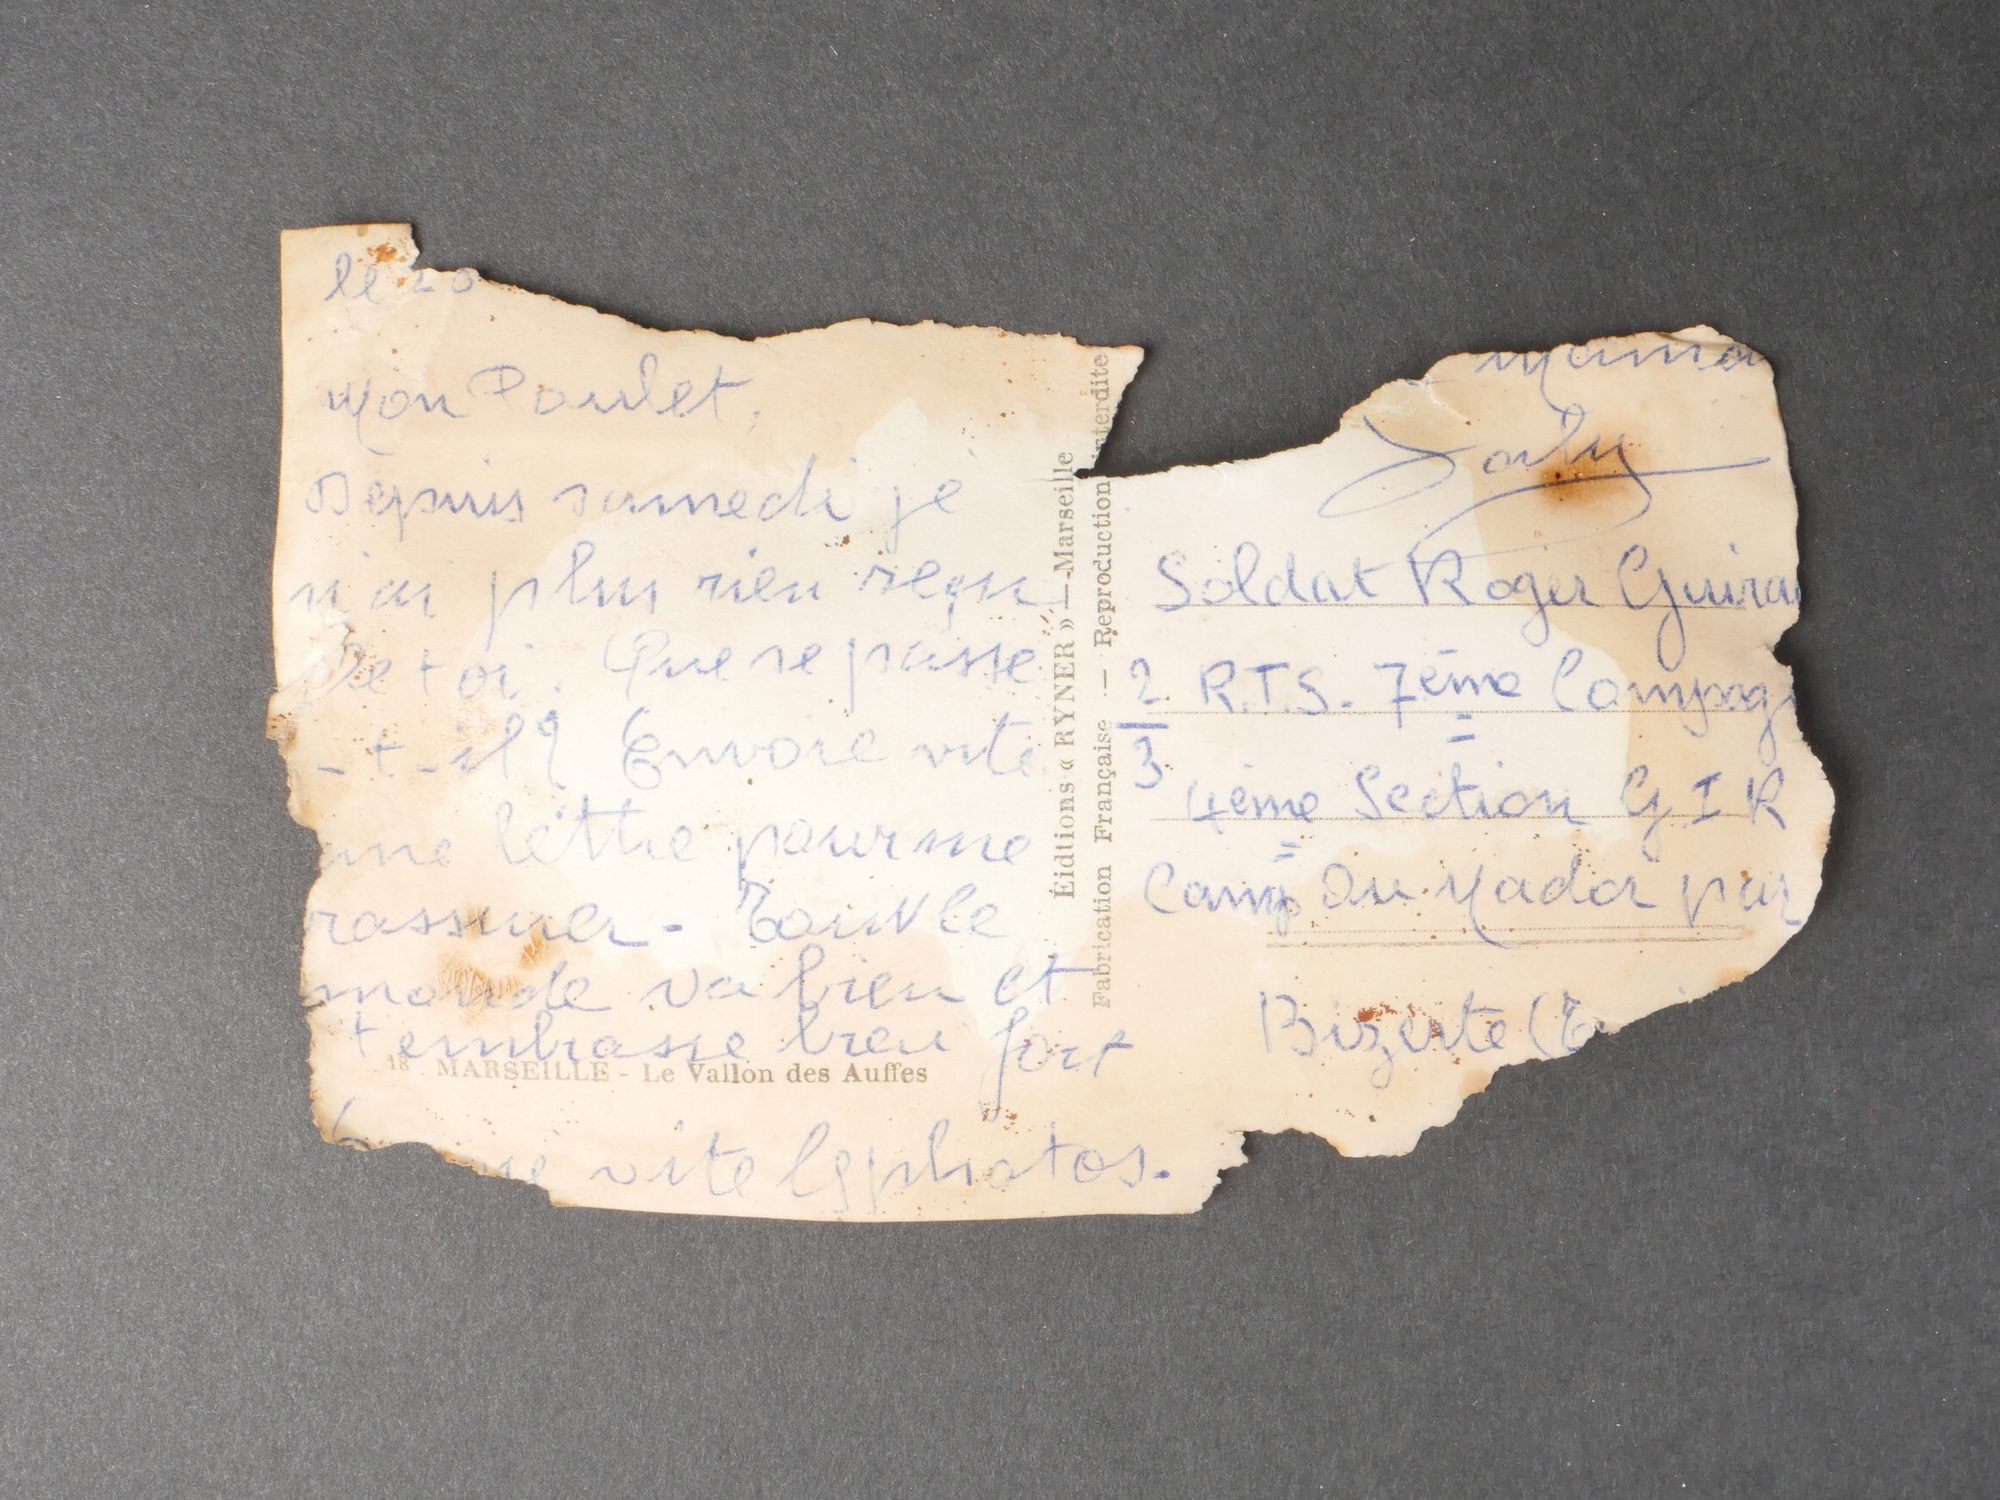 le 20
Mon Poulet,
Depuis samedi je
n'ai plus rien reçu
De toi. Que se passe
-t-il? Envoie vite
une lettre pour me
rassurer. Tout le
monde va bien et
t'embrasse bien fort
vite les photos.
18 MARSEILLE - Le Vallon des Auffes
Éidtions « RYNER » - Marseille
Fabrication Française — Reproduction interdite
maman
Soldat Roger Guirau
2 R.T.S. 7ème Compag
3
4ème Section G I R
Camp Du Nador par
Bizerte (